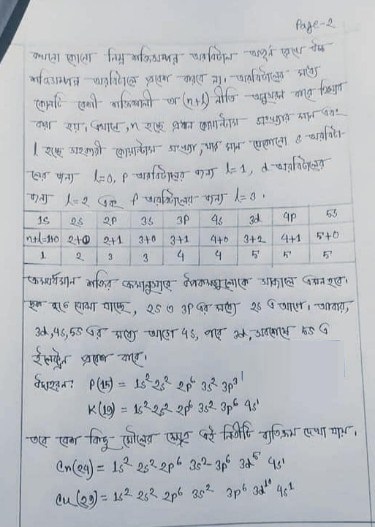 Page-2
কখনো কোনো নিম্ন শক্তিসম্পন্ন অরবিটাল অপূর্ণ রেখে উচ্চ
শক্তিসম্পন্ন অরবিটালে প্রবেশ করবে না। অরবিটালের মধ্যে
কোনটি বেশী শক্তিশালী তা (n+l) নীতি অনুসারে হিসাব
করা হয়, এখানে, n হচ্ছে প্রধান কোয়ান্টাম সংখ্যার মান এবং
l হচ্ছে সহকারী কোয়ান্টাম সংখ্যা, যার মান যেকোনো s অরবিটা-
লের জন্য l=0, p অরবিটালের জন্য l=1, d অরবিটালের
জন্য l=2 এবং f অরবিটালের জন্য l=3.
1s 2s 2p 3s 3p 4s 3d 4p 5s
n+l=1+0 2+0 2+1 3+0 3+1 4+0 3+2 4+1 5+0
1 2 3 3 4 4 5 5 5
ক্রমবর্ধমান শক্তির ক্রমানুসারে উপকক্ষগুলোকে সাজালে এমন হবে।
ছক হতে দেখা যাচ্ছে, 2s ও 3p এর মধ্যে 2s এ আগে। আবার,
3d, 4s, 5s এর মধ্যে আগে 4s, পরে 3d, অবশেষে 5s এ
ইলেকট্রন প্রবেশ করে।
উদাহরন: P(15) = 1s² 2s² 2p⁶ 3s² 3p³
K(19) = 1s² 2s² 2p⁶ 3s² 3p⁶ 4s¹
তবে বেশ কিছু মৌলের ক্ষেত্রে এই নিয়মটি ব্যতিক্রম দেখা যায়।
Cr(24) = 1s² 2s² 2p⁶ 3s² 3p⁶ 3d⁵ 4s¹
Cu(29) = 1s² 2s² 2p⁶ 3s² 3p⁶ 3d¹⁰ 4s¹